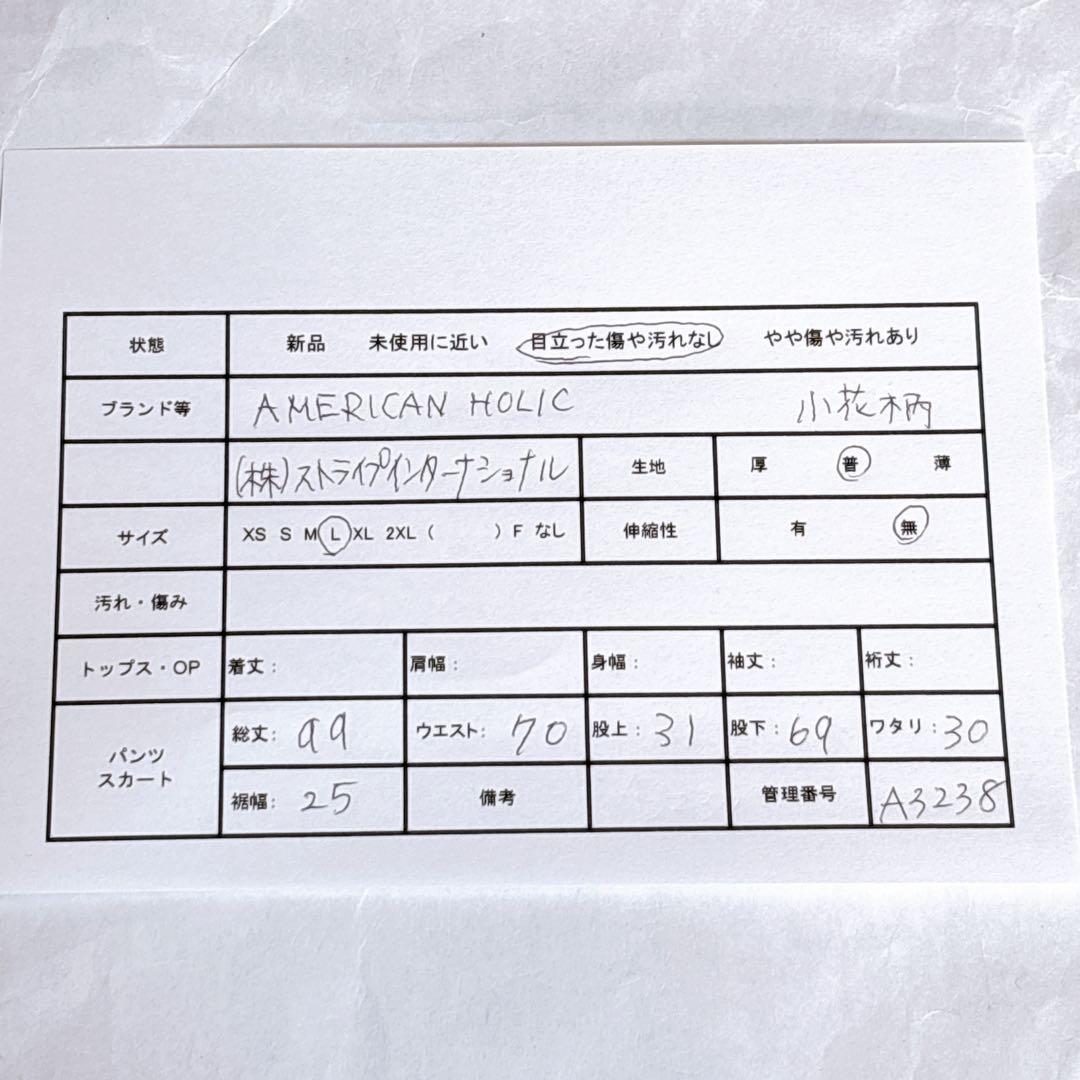 状態 新品 未使用に近い 目立った傷や汚れなし やや傷や汚れあり
ブランド等 AMERICAN HOLIC 小花柄
(株)ストライプインターナショナル 生地 厚 普 薄
サイズ XS S M L XL 2XL ( ) F なし 伸縮性 有 無
汚れ・傷み
トップス・OP 着丈: 肩幅: 身幅: 袖丈: 裄丈:
パンツ スカート 総丈: 99 ウエスト: 70 股上: 31 股下: 69 ワタリ: 30
裾幅: 25 備考 管理番号 A3238